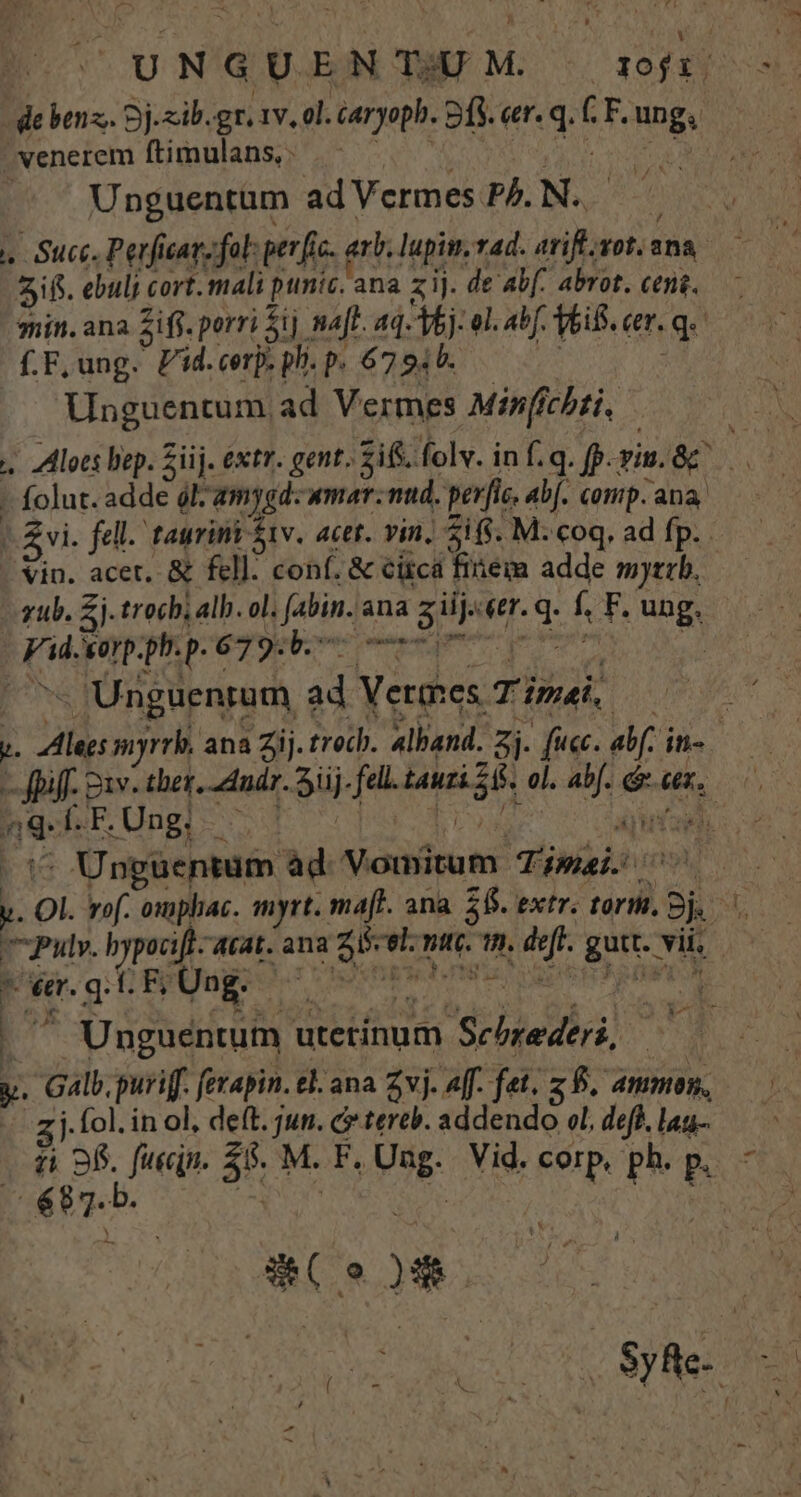 UNGUENTUM. 1051
de benz. ℈j. zib. gr. iv. ol. caryoph. ℈ß. cer. q. ſ. F. ung.
venerem ſtimulans.
Unguentum ad Vermes Ph. N.
Succ. Perſicar. fol. perſic. arb. lupin. rad. ariſt. rot. ana
ʒiß. ebulj cort. mali punic. ana ʒij. de abſ. abrot. cent.
min. ana ʒiß. porri ʒij naſt. aq. ℔j. ol. abſ. ℔iß. cer. q.
ſ. F. ung. Vid. corp. ph. p. 679. b.
Unguentum ad Vermes Minſichti.
Aloes hep. ʒiij. extr. gent. ʒiß. ſolv. in ſ. q. ſp. vin. &
ſolut. adde ol. amygd. amar. nud. perſic. abſ. comp. ana
ʒvi. fell. taurini ʒiv. acet. vin. ʒiß. M. coq. ad ſp.
vin. acet. & fell. conſ. & circa finem adde myrrh.
rub. ʒj. troch. alh. ol. ſabin. ana ʒiij. cer. q. ſ. F. ung.
Vid. corp. ph. p. 679. b.
Unguentum ad Vermes Timæi.
℞. Aloes myrrh. ana ʒij. troch. alhand. ʒj. ſucc. abſ. in-
ſpiſſ. ℈iv. ther. Andr. ʒiij. fell. tauri ʒß. ol. abſ. & cer.
q. ſ. F. Ung.
Unguentum ad Vomitum Timæi.
℞. Ol. roſ. omphac. myrt. maſt. ana ʒß. extr. torm. ℈j.
Pulv. hypociſt. acat. ana ʒß. ol. nuc. m. deſt. gutt. vii.
cer. q. ſ. F. Ung.
Unguentum uterinum Schrœderi.
℞. Galb. puriſſ. ſerapin. el. ana ʒvj. aſſ. fæt. ʒß. ammon.
ʒj. ſol. in ol. deſt. jun. & tereb. addendo ol. deſt. lau-
ri ℈ß. ſuccin. ʒß. M. F. Ung. Vid. corp. ph. p.
687. b.
Syſte-